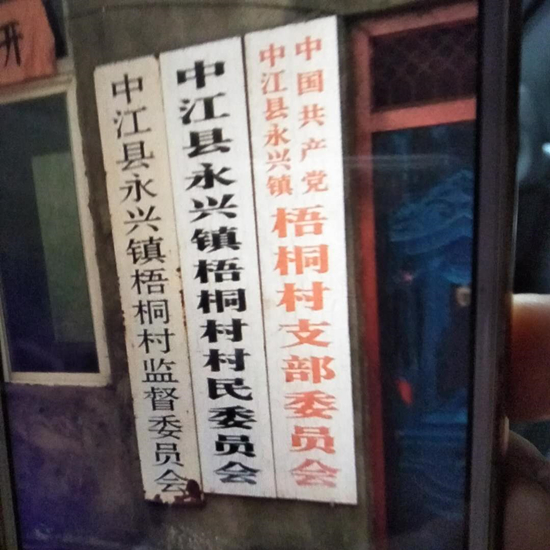 开
中国共产党
中江县永兴镇
梧桐村支部委员会
中江县永兴镇梧桐村村民委员会
中江县永兴镇梧桐村监督委员会